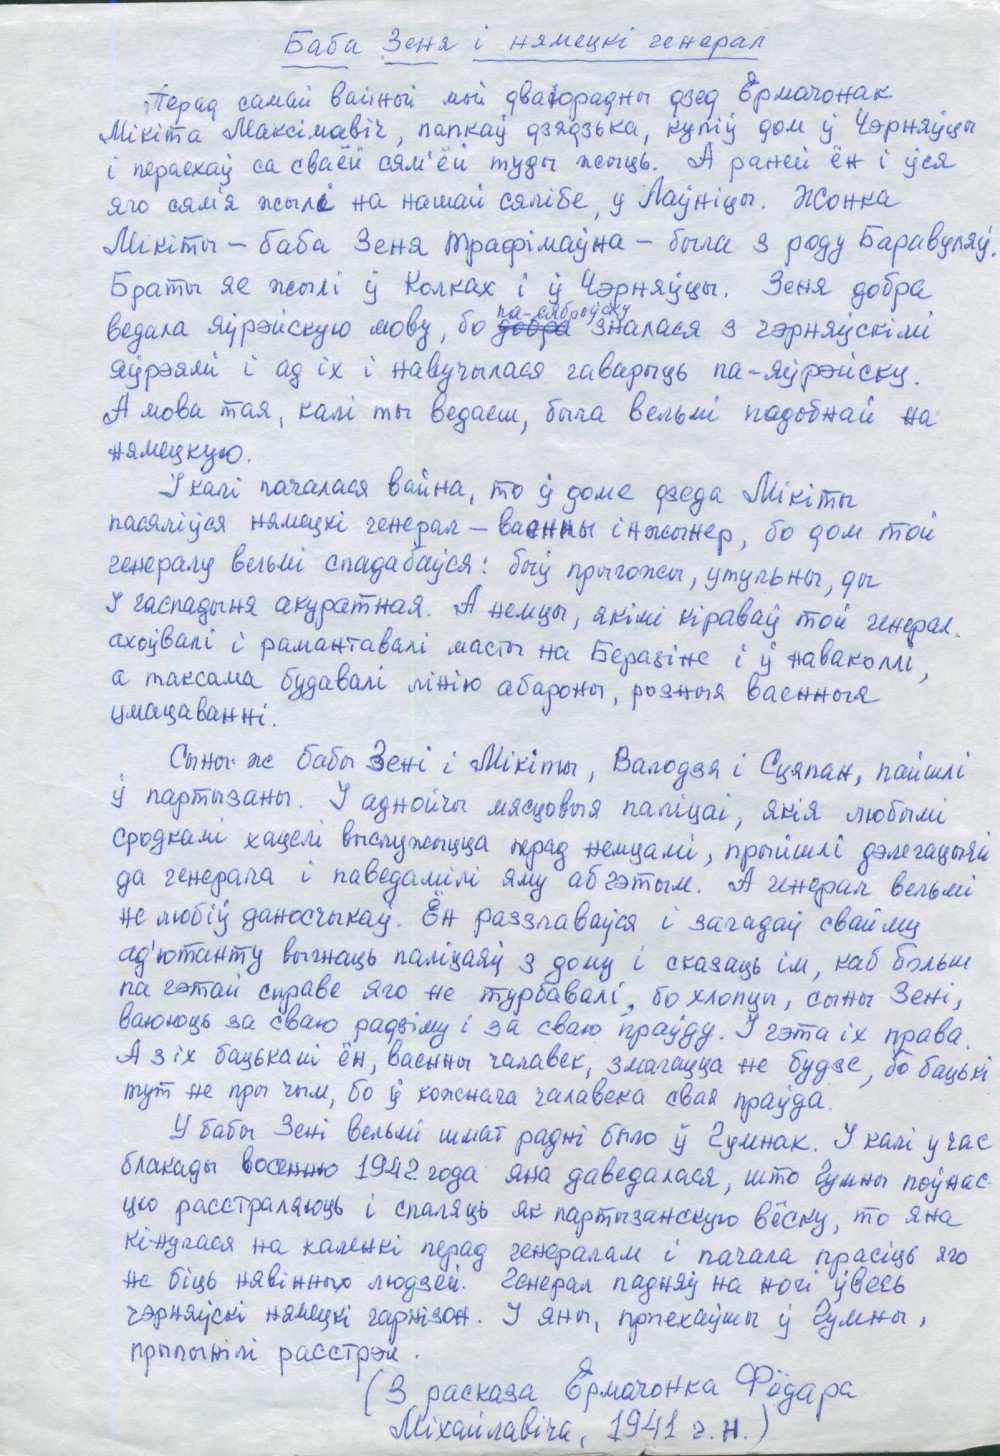 Баба Зеня і нямецкі генерал
Перад самай вайной мой двайорадны дзед Ярмачонак
Мікіта Максімавіч, папкаў дзядзька, купіў дом у Чэрняўцы
і пераехаў са сваёй сям'ёй туды жыць. А раней ён і ўся
яго сям'я жылі на нашай сялібе, у Лаўніцы. Жонка
Мікіты – баба Зеня Трафімаўна – была з роду Баравуляў.
Браты яе жылі ў Колках і ў Чэрняўцы. Зеня добра
ведала яўрэйскую мову, бо па-сяброўску зналася з чэрняўскімі
яўрэямі і ад іх і навучылася гаварыць па-яўрэйску.
А мова тая, калі ты ведаеш, была вельмі падобнай на
нямецкую.
І калі пачалася вайна, то ў доме дзеда Мікіты
пасяліўся нямецкі генерал – ваенны інжынер, бо дом той
генералу вельмі спадабаўся: быў прыгожы, утульны, ды
і гаспадыня акуратная. А немцы, якімі кіраваў той генерал,
ахоўвалі і рамантавалі масты на Беразіне і ў наваколлі,
а таксама будавалі лінію абароны, розныя ваенныя
умацаванні.
Сыны ж бабы Зені і Мікіты, Валодзя і Сцяпан, пайшлі
ў партызаны. І аднойчы мясцовыя паліцаі, якія любымі
сродкамі хацелі выслужыцца перад немцамі, прыйшлі дэлегацыяй
да генерала і паведамілі яму аб гэтым. А генерал вельмі
не любіў даносчыкаў. Ён раззлаваўся і загадаў свайму
ад'ютанту выгнаць паліцаяў з дому і сказаць ім, каб больш
па гэтай справе яго не турбавалі, бо хлопцы, сыны Зені,
ваююць за сваю радзіму і за сваю праўду. І гэта іх права.
А з іх бацькамі ён, ваенны чалавек, змагацца не будзе, бо бацькі
тут не пры чым, бо ў кожнага чалавека свая праўда.
У бабы Зені вельмі шмат радні было ў Гумнах. І калі у час
блакады восенню 1942 года яна даведалася, што Гумны поўнас-
цю расстраляюць і спаляць як партызанскую вёску, то яна
кінулася на каленкі перад генералам і пачала прасіць яго
не біць нявінных людзей. Генерал падняў на ногі ўвесь
чэрняўскі нямецкі гарнізон. І яны, прыехаўшы ў Гумны,
прыпынілі расстрэл.
(З расказа Ярмачонка Фёдара
Міхайлавіча, 1941 г.н.)